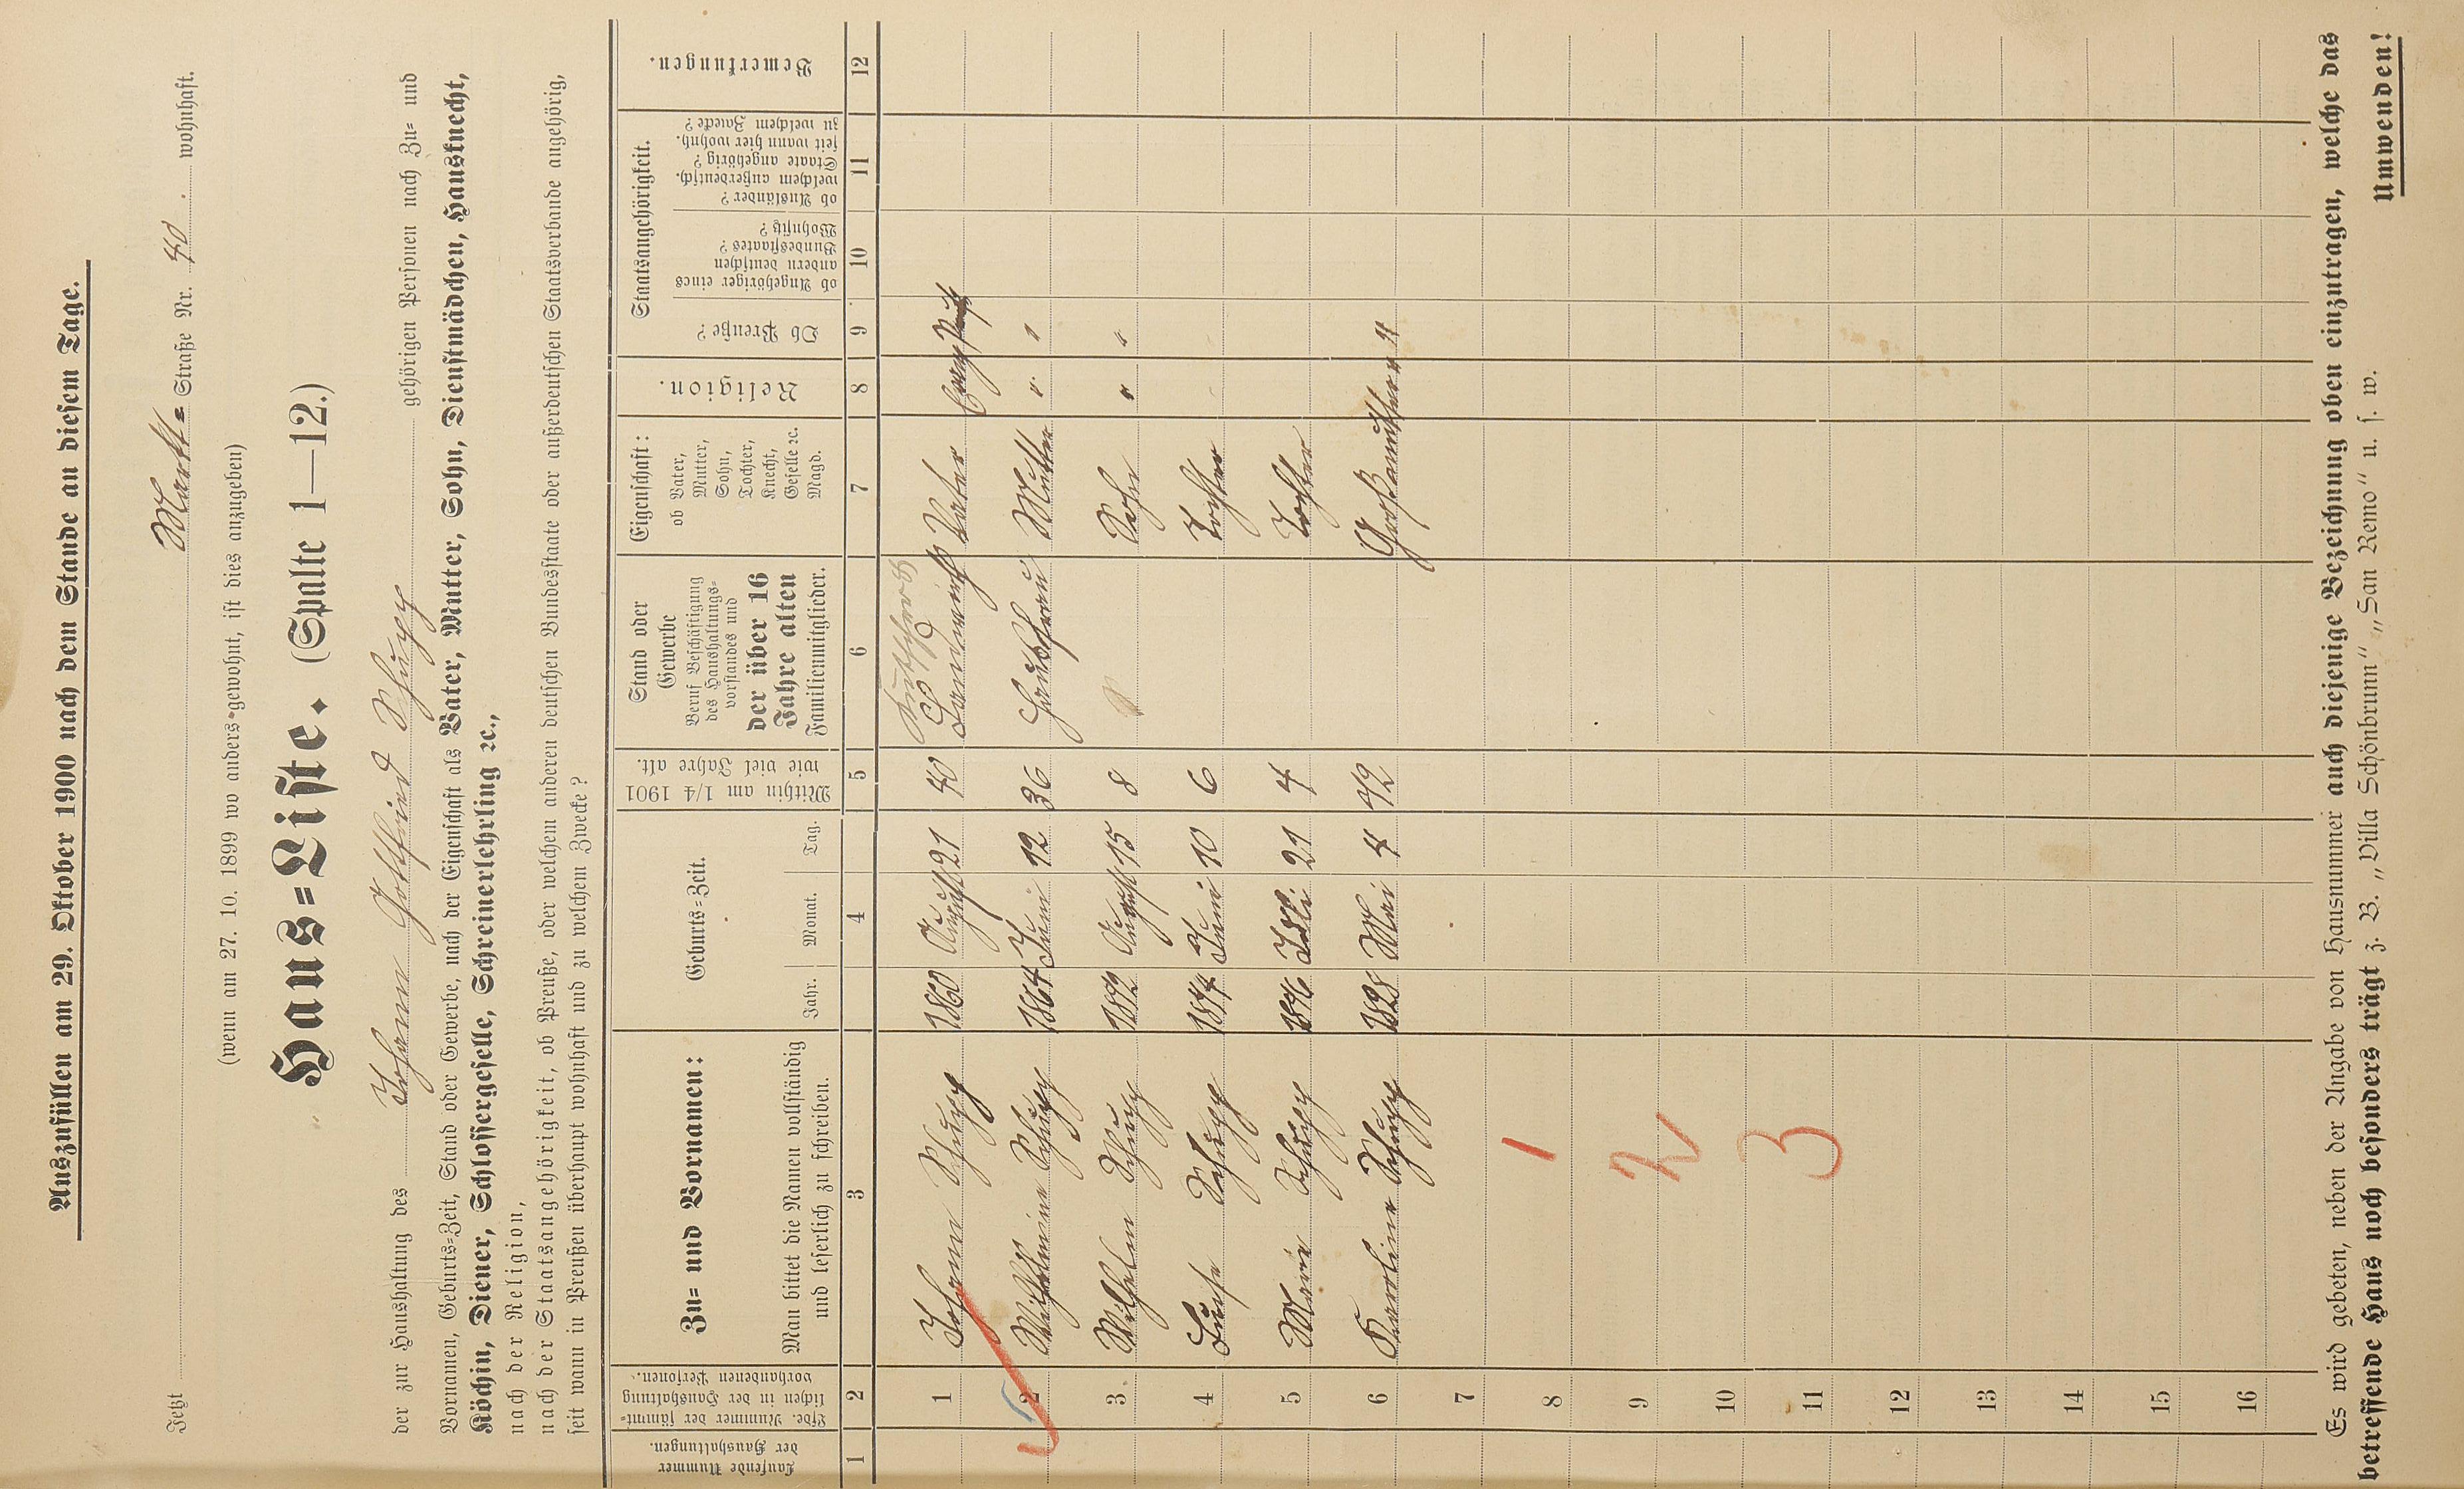 Auszufüllen am 29. Oktober 1900 nach dem Stande an diesem Tage.
Jetzt Markt= Straße Nr. 40. wohnhaft.
(wenn am 27. 10. 1899 wo anders gewohnt, ist dies anzugeben)
Haus=Liste. (Spalte 1—12.)
der zur Haushaltung des Johann Gottfried Schupp gehörigen Personen nach Zu= und
Vornamen, Geburts=Zeit, Stand oder Gewerbe, nach der Eigenschaft als Vater, Mutter, Sohn, Dienstmädchen, Hausknecht,
Köchin, Diener, Schlossergeselle, Schreinerlehrling ꝛc.,
nach der Religion,
nach der Staatsangehörigkeit, ob Preuße, oder welchem anderen deutschen Bundesstaate oder außerdeutschen Staatsverbande angehörig,
seit wann in Preußen überhaupt wohnhaft und zu welchem Zwecke?
Laufende Nummer
der Haushaltungen.
Lfde. Nummer der sämmt=
lichen in der Haushaltung
vorhandenen Personen.
Zu= und Vornamen:
Man bittet die Namen vollständig
und leserlich zu schreiben.
Geburts=Zeit.
Jahr. Monat. Tag.
Mithin am 1/4 1901
wie viel Jahre alt.
Stand oder
Gewerbe
Beruf Beschäftigung
des Haushaltungs=
vorstandes und
der über 16
Jahre alten
Familienmitglieder.
Eigenschaft:
ob Vater,
Mutter,
Sohn,
Tochter,
Knecht,
Geselle ꝛc.
Magd.
Religion.
Staatsangehörigkeit.
Ob Preuße?
ob Angehöriger eines
andern deutschen
Bundesstaates?
Wohnsitz?
ob Ausländer?
welchem außerdeutsch.
Staate angehörig?
seit wann hier wohnh.
zu welchem Zwecke?
Bemerkungen.
1 2 3 4 5 6 7 8 9 10 11 12
1 Johann Schupp 1860 August 21 40 Landwirth Vater Evang
2 Wilhelmine Schupp 1864 Juni 12 36 Hausfrau Mutter " "
3 Wilhelm Schupp 1892 August 15 8 Sohn " "
4 Luise Schupp 1894 Juni 10 6 Tochter
5 Marie Schupp 1896 Juli 21 4 Tochter
6 Karoline Schupp 1828 Mai 4 72 Großmutter
7
8 1
9 2
10
11 3
12
13
14
15
16
Es wird gebeten, neben der Angabe von Hausnummer auch diejenige Bezeichnung oben einzutragen, welche das
betreffende Haus noch besonders trägt z. B. „Villa Schönbrunn“ „San Remo“ u. s. w.
Umwenden!